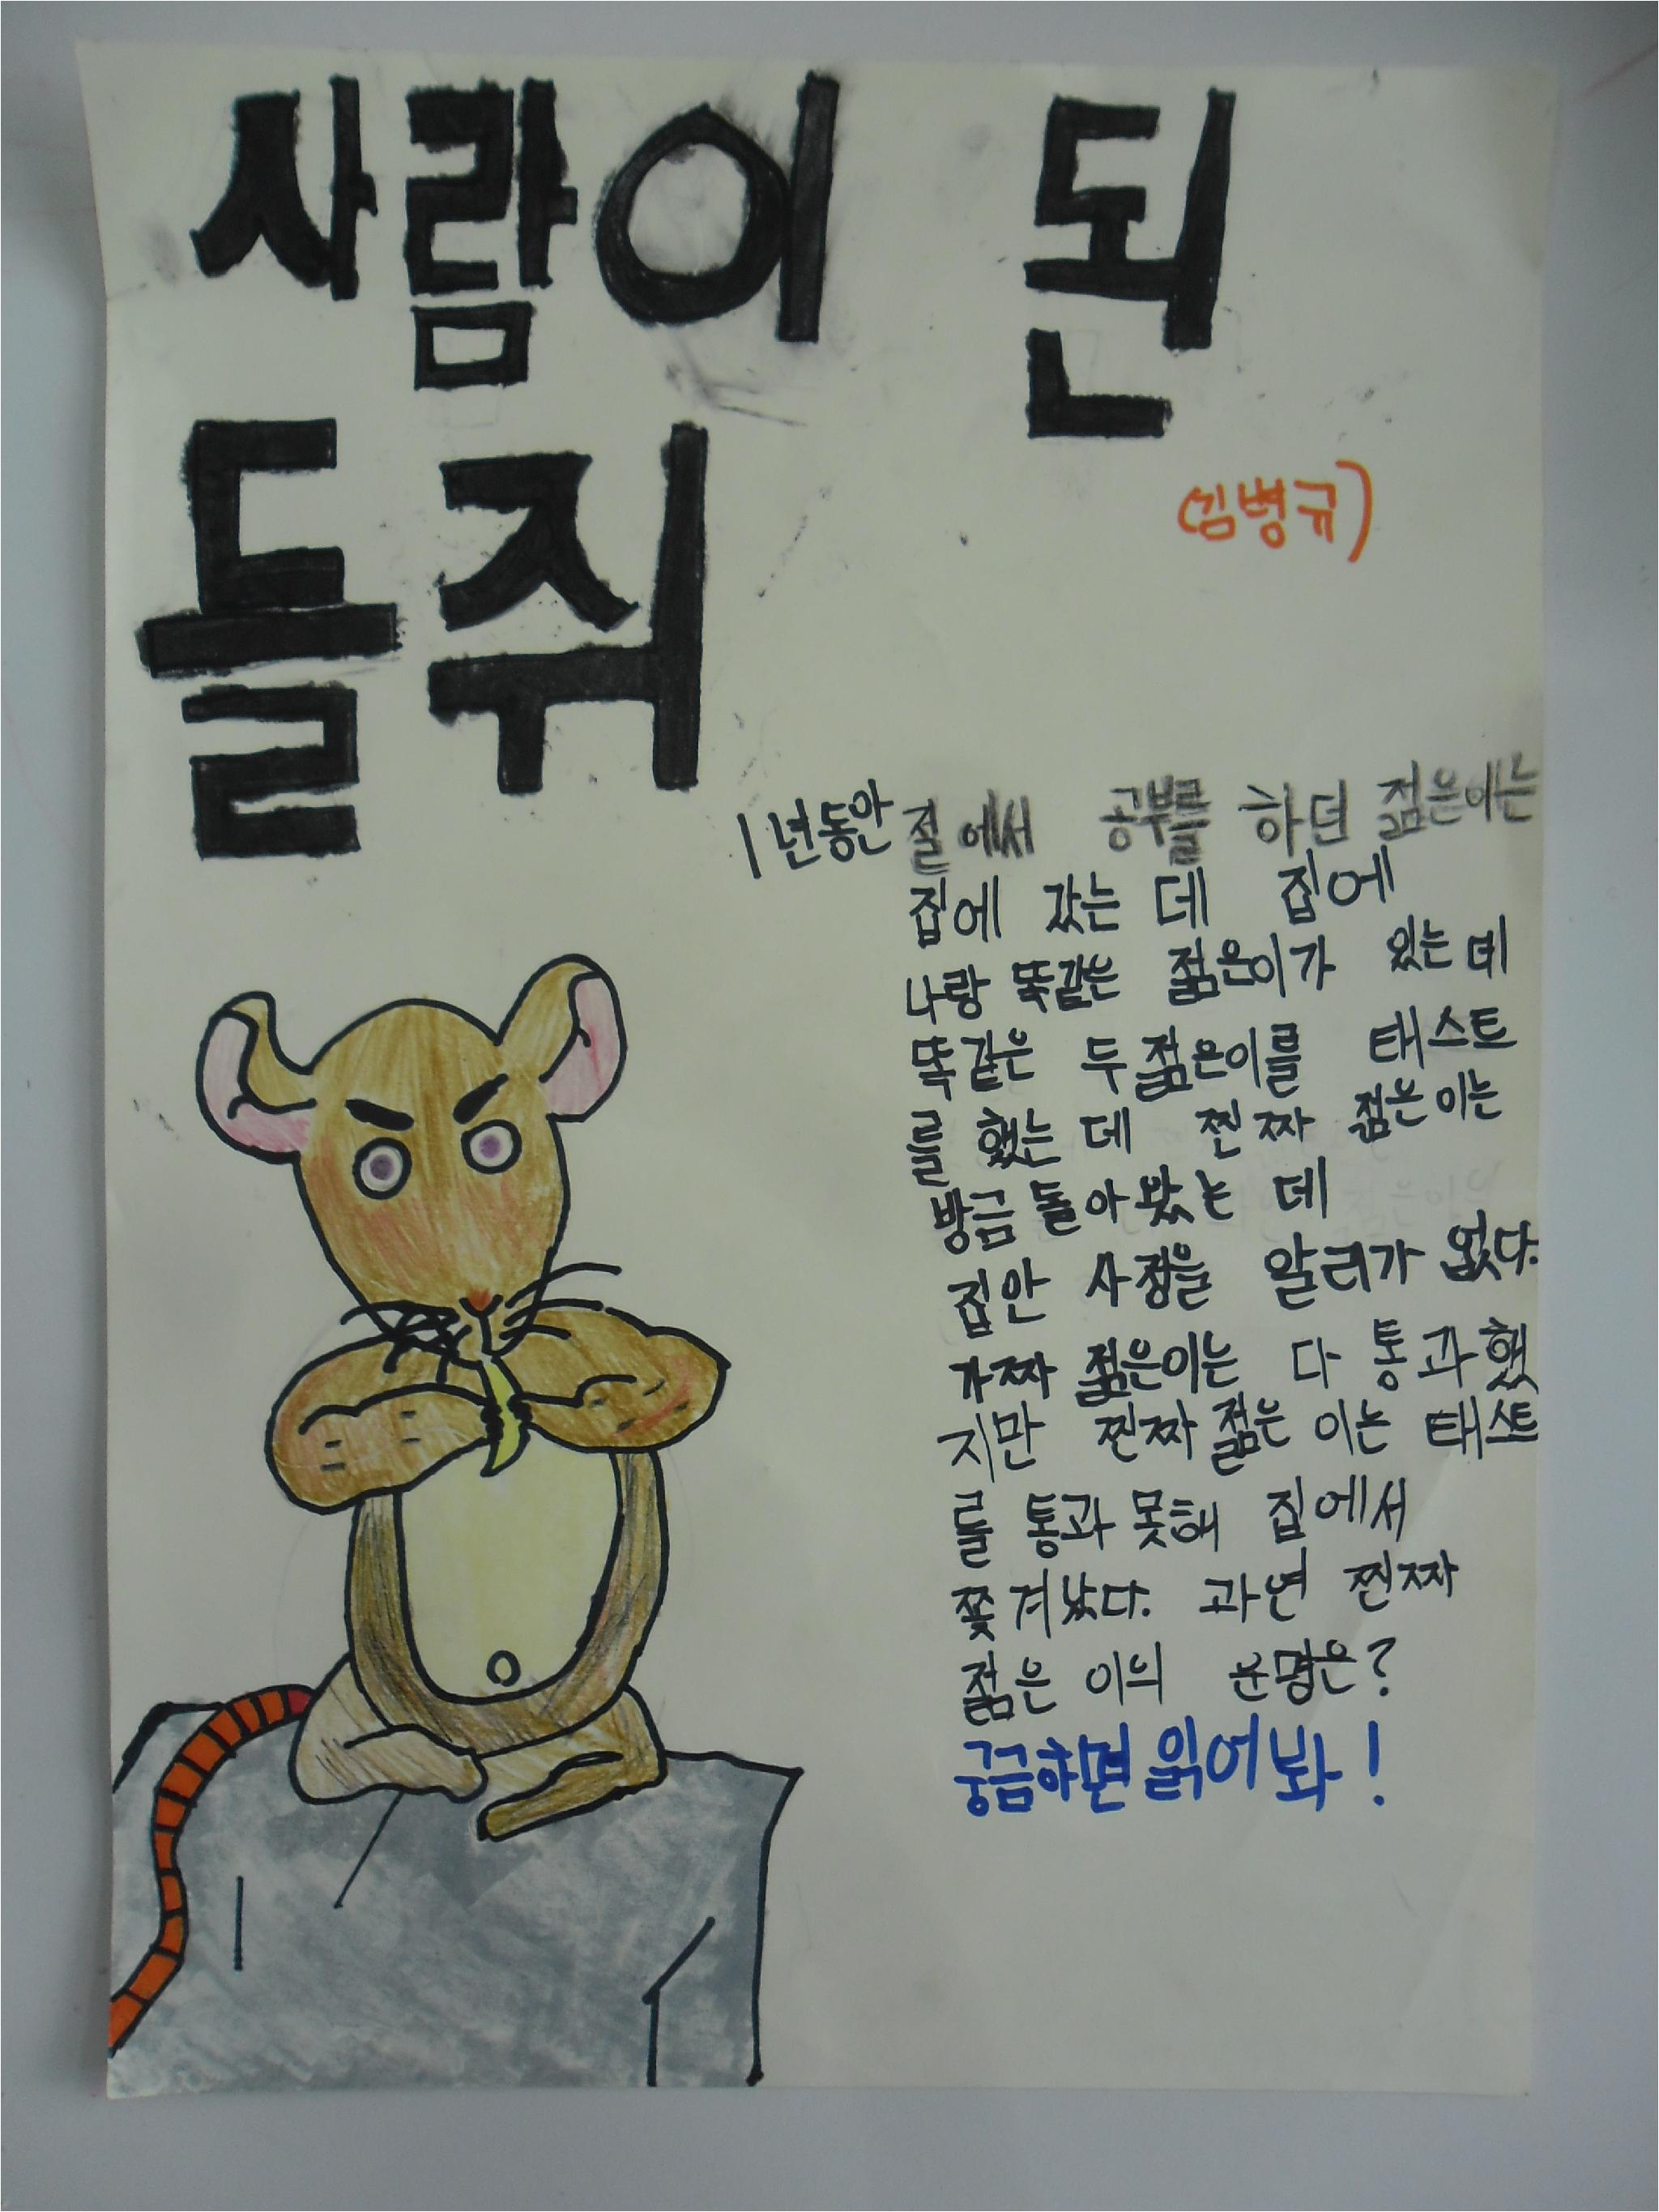 사람이 된
들쥐
(김병규)
1년동안 절에서 공부를 하던 젊은이는
집에 갔는 데 집에
나랑 똑같은 젊은이가 있는데
똑같은 두젊은이를 태스트
를 했는 데 찐짜 젊은이는
방금 돌아 왔는 데
집안 사정을 알리가 없다.
가짜 젊은이는 다 통과했
지만 찐짜 젊은 이는 태스트
를 통과 못해 집에서
쫓겨났다. 과연 찐짜
젊은 이의 운명은?
궁금하면 읽어봐!